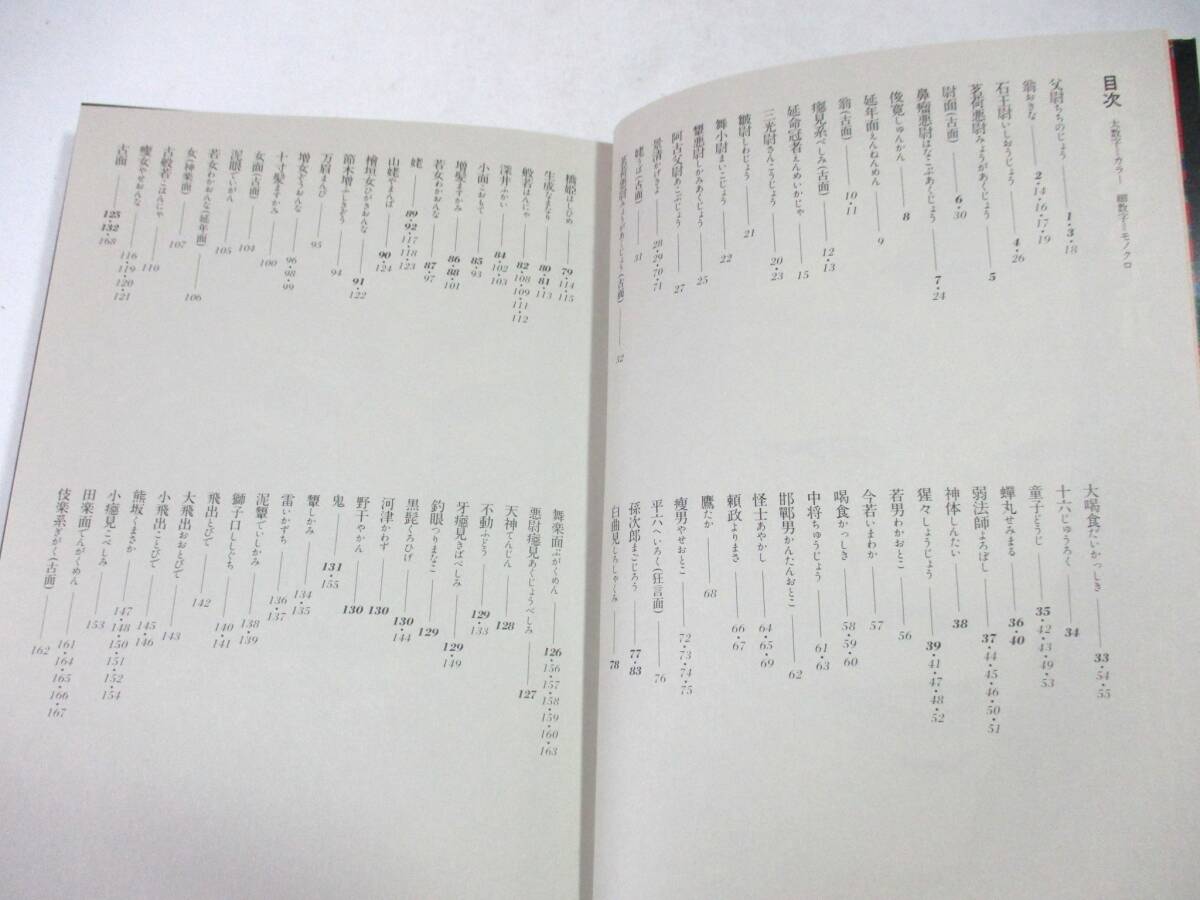 目次 太数字＝カラー 細数字＝モノクロ
父尉ちちのじょう――1・3・18
翁おきな――2・14・16・17・19
石王尉いしおうじょう――4・26
茗荷悪尉みょうがあくじょう――5
尉面(古面)――6・30
鼻瘤悪尉はなこぶあくじょう――7・24
俊寛しゅんかん――8
延年面えんねんめん――9
翁(古面)――10・11
癋見系べしみ(古面)――12・13
延命冠者えんめいかじゃ――15
三光尉さんこうじょう――20・23
皺尉しわじょう――21
舞小尉まいこじょう――22
顰悪尉しかみあくじょう――25
阿古父尉あこぶじょう――27
景清かげきよ――28・29・70・71
姥うば(古面)――31
茗荷悪尉みょうがあくじょう(古面)――32
大喝食だいかっしき――33・54・55
十六じゅうろく――34
童子どうじ――35・42・43・49・53
蟬丸せみまる――36・40
弱法師よろぼし――37・44・45・46・50・51
神体しんたい――38
猩々しょうじょう――39・41・47・48・52
若男わかおとこ――56
今若いまわか――57
喝食かっしき――58・59・60
中将ちゅうじょう――61・63
邯鄲男かんたんおとこ――62
怪士あやかし――64・65・69
頼政よりまさ――66・67
鷹たか――68
瘦男やせおとこ――72・73・74・75
平六へいろく(狂言面)――76
孫次郎まごじろう――77・83
白曲見しろしゃくみ――78
橋姫はしひめ――79・114・115
生成なまなり――80・81・113
般若はんにゃ――82・108・109・111・112
深井ふかい――84・102・103
小面こおもて――85・93
増髪ますかみ――86・88・101
若女わかおんな――87・97
姥――89・92・117・118・123
山姥やまんば――90・124
檜垣女ひがきおんな――91・122
節木増ふしきぞう――94
万眉まんび――95
増女ぞうおんな――96・98・99
十寸髪ますかみ――100
女面(古面)――104
泥眼でいがん――105
若女わかおんな(延年面)――106
女(神楽面)――107
古般若こはんにゃ――110
瘦女やせおんな――116・119・120・121
古面――125・132・168
舞楽面ぶがくめん――126・156・157・158・159・160・163
悪尉癋見あくじょうべしみ――127
天神てんじん――128
不動ふどう――129・133
牙癋見きばべしみ――129・149
釣眼つりまなこ――129
黒髭くろひげ――130・144
河津かわず――130
野干やかん――130
鬼――131・155
顰しかみ――134・135
雷いかずち――136・137
泥顰でいしかみ――138・139
獅子口ししぐち――140・141
飛出とびで――142
大飛出おおとびで――143
小飛出ことびで――145・146
熊坂くまさか――147・148・150・151・152・154
小癋見こべしみ――153
田楽面でんがくめん――161・164・165・166・167
伎楽系ぎがく(古面)――162